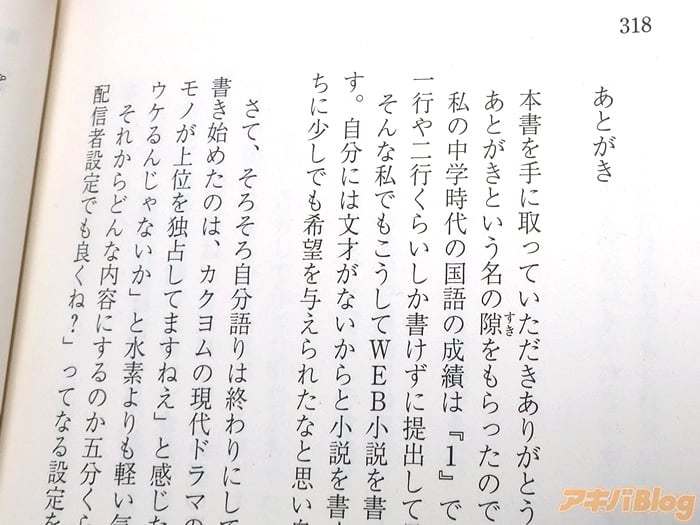 318
あとがき
本書を手に取っていただきありがとう
あとがきという名の隙をもらったので
すき
私の中学時代の国語の成績は『1』で
一行や二行くらいしか書けずに提出して
そんな私でもこうしてWEB小説を書
す。自分には文才がないからと小説を書
ちに少しでも希望を与えられたなと思い
さて、そろそろ自分語りは終わりにして
書き始めたのは、カクヨムの現代ドラマの
モノが上位を独占してますねえ」と感じた
ウケるんじゃないか」と水素よりも軽い気
それからどんな内容にするのか五分くら
配信者設定でも良くね？」ってなる設定を
アキバBlog